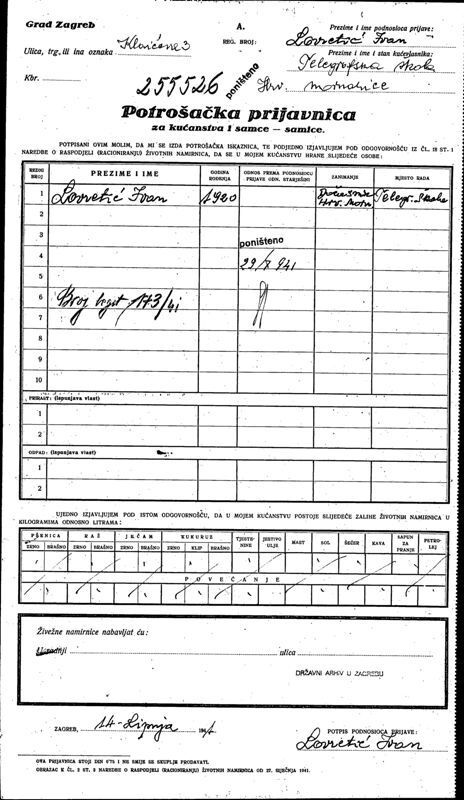 Grad Zagreb
A.
REG. BROJ:
Prezime i ime podnosioca prijave:
Lovretić Ivan
Ulica, trg, ili ina oznaka Klaićeva 3
Prezime i ime i stan kućevlasnika:
Telegrafska škola
Kbr.
255526
poništeno
Hrv. mornarice
Potrošačka prijavnica
za kućanstva i samce — samice.
POTPISANI OVIM MOLIM, DA MI SE IZDA POTROŠAČKA ISKAZNICA, TE PODJEDNO IZJAVLJUJEM POD ODGOVORNOŠĆU IZ ČL. 18 ST. 1
NAREDBE O RASPODJELI (RACIONIRANJU) ŽIVOTNIH NAMIRNICA, DA SE U MOJEM KUĆANSTVU HRANE SLIJEDEĆE OSOBE:
REDNI BROJ PREZIME I IME GODINA ROĐENJA ODNOS PREMA PODNOSIOCU PRIJAVE ODN. STARJEŠINI ZANIMANJE MJESTO RADA
1 Lovretić Ivan 1920 Hrv. Morn. Telegr. škola
2
3
poništeno
4
29/X 941
5
6 Broj 173/41
7
8
9
10
PRIRAST: (ispunjava vlast)
1
2
OTPAD: (ispunjava vlast)
1
2
UJEDNO IZJAVLJUJEM POD ISTOM ODGOVORNOŠĆU, DA U MOJEM KUĆANSTVU POSTOJE SLIJEDEĆE ZALIHE ŽIVOTNIH NAMIRNICA U
KILOGRAMIMA ODNOSNO LITRAMA:
PŠENICA RAŽ JEČAM KUKURUZ TJESTENINE JESTIVO ULJE MAST SOL ŠEĆER KAVA SAPUN ZA PRANJE PETROLEJ
ZRNO BRAŠNO ZRNO BRAŠNO ZRNO BRAŠNO ZRNO KLIP BRAŠNO
POVEĆANJE
Živežne namirnice nabavljat ću:
ulica
DRŽAVNI ARHIV U ZAGREBU
ZAGREB, 14. Lipnja 1941
POTPIS PODNOSIOCA PRIJAVE:
Lovretić Ivan
OVA PRIJAVNICA STOJI DIN 0'75 I NE SMIJE SE SKUPLJE PRODAVATI.
OBRAZAC K ČL. 2 ST. 2 NAREDBE O RASPODJELI (RACIONIRANJU) ŽIVOTNIH NAMIRNICA OD 27. SIJEČNJA 1941.